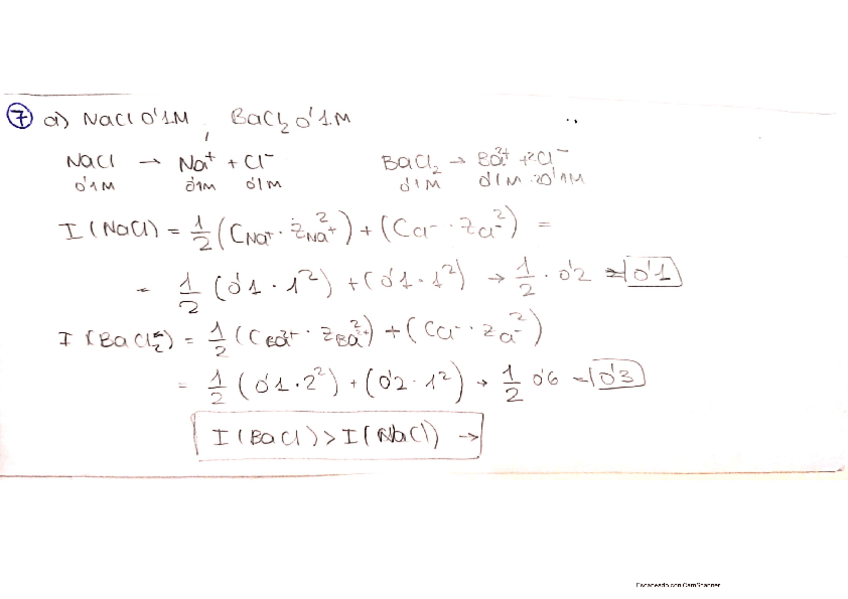 7 a) NaCl 0'1M, BaCl2 0'1M
NaCl → Na+ + Cl-    BaCl2 → Ba2+ + 2Cl-
0'1M 0'1M 0'1M    0'1M 0'1M 2·0'1M
I (NaCl) = 1/2 (CNa+ · ZNa+^2) + (CCl- · ZCl-^2) =
= 1/2 (0'1 · 1^2) + (0'1 · 1^2) → 1/2 · 0'2 = 0'1
I (BaCl2) = 1/2 (CBa2+ · ZBa2+^2) + (CCl- · ZCl-^2)
= 1/2 (0'1 · 2^2) + (0'2 · 1^2) → 1/2 0'6 = 0'3
I (BaCl) > I (NaCl) →
Escaneado con CamScanner